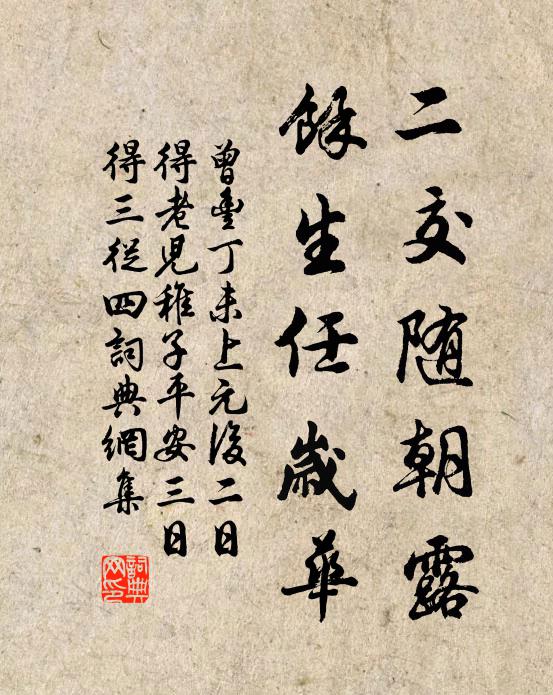 二交随朝露
餘生任歲華
曾豐丁未上元後二日
得老兒稚子平安三日
得三從四詞典網集
詞典网印